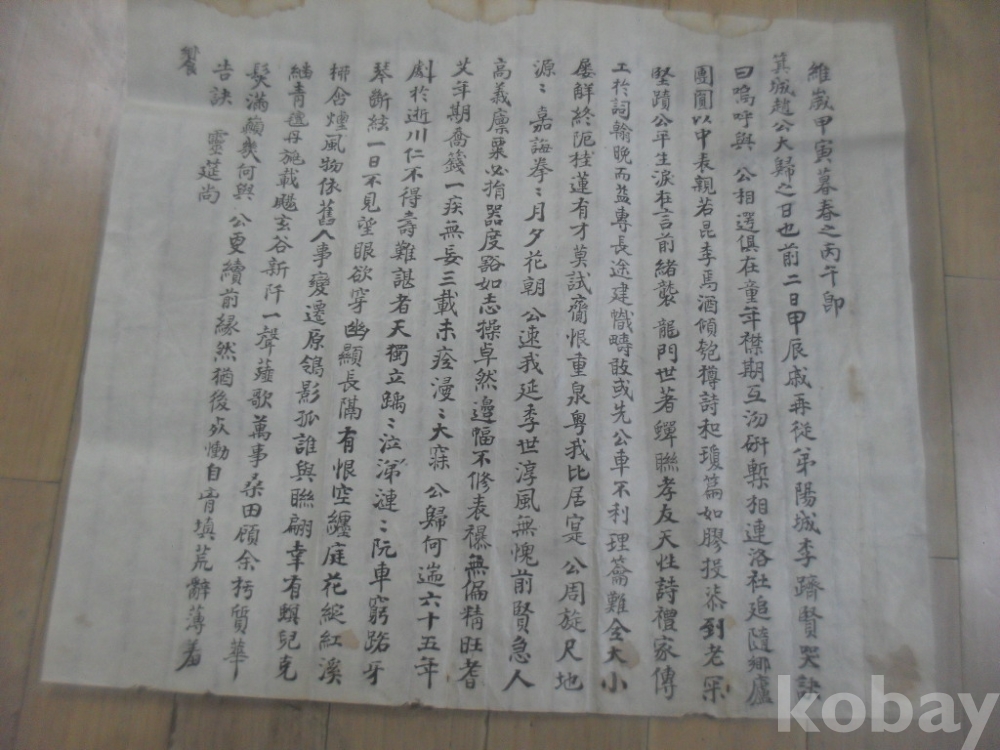 維歲甲寅暮春之丙午卽
箕城趙公大歸之日也前二日甲辰戚再從弟陽城李躋賢哭訣
曰嗚呼與 公相選俱在童年襟期互沕硏槧相連洛社追隨鄉廬
團圓以中表親若昆季焉酒傾匏樽詩和瓊篇如膠投漆到老采
堅蹟公平生淚在言前緖襲龍門世著蟬聯孝友天性詩禮家傳
工於詞翰晩而益專長途建幟疇敢或先公車不利理篇難全大小
屢解終阨桂蓮有才莫試齎恨重泉粤我比居寔公周旋尺地
源〻嘉誨拳〻月夕花朝公速我延季世淳風無愧前賢急人
高義廩粟必捐器度豁如志操卓然邊幅不修表襮無偏精旺耆
艾年期喬籛一疾無妄三載未痊漫〻大寐 公歸何遄六十五年
劇於逝川仁不得壽難諶者天獨立踽〻泣涕漣〻阮車窮路牙
琴斷絃一日不見望眼欲穿幽顯長隔有恨空纏庭花綻紅溪
柳含煙風物依舊人事變遷原鴒影孤誰與聯翩幸有螟兒克
紬青氊丹旐載颺玄谷新阡一聲薤歌萬事桑田顧余朽質華
髮滿顚幾何與 公更續前緣然猶後死慟自膏塡荒辭薄羞
告訣 靈筵尙
饗
kobay